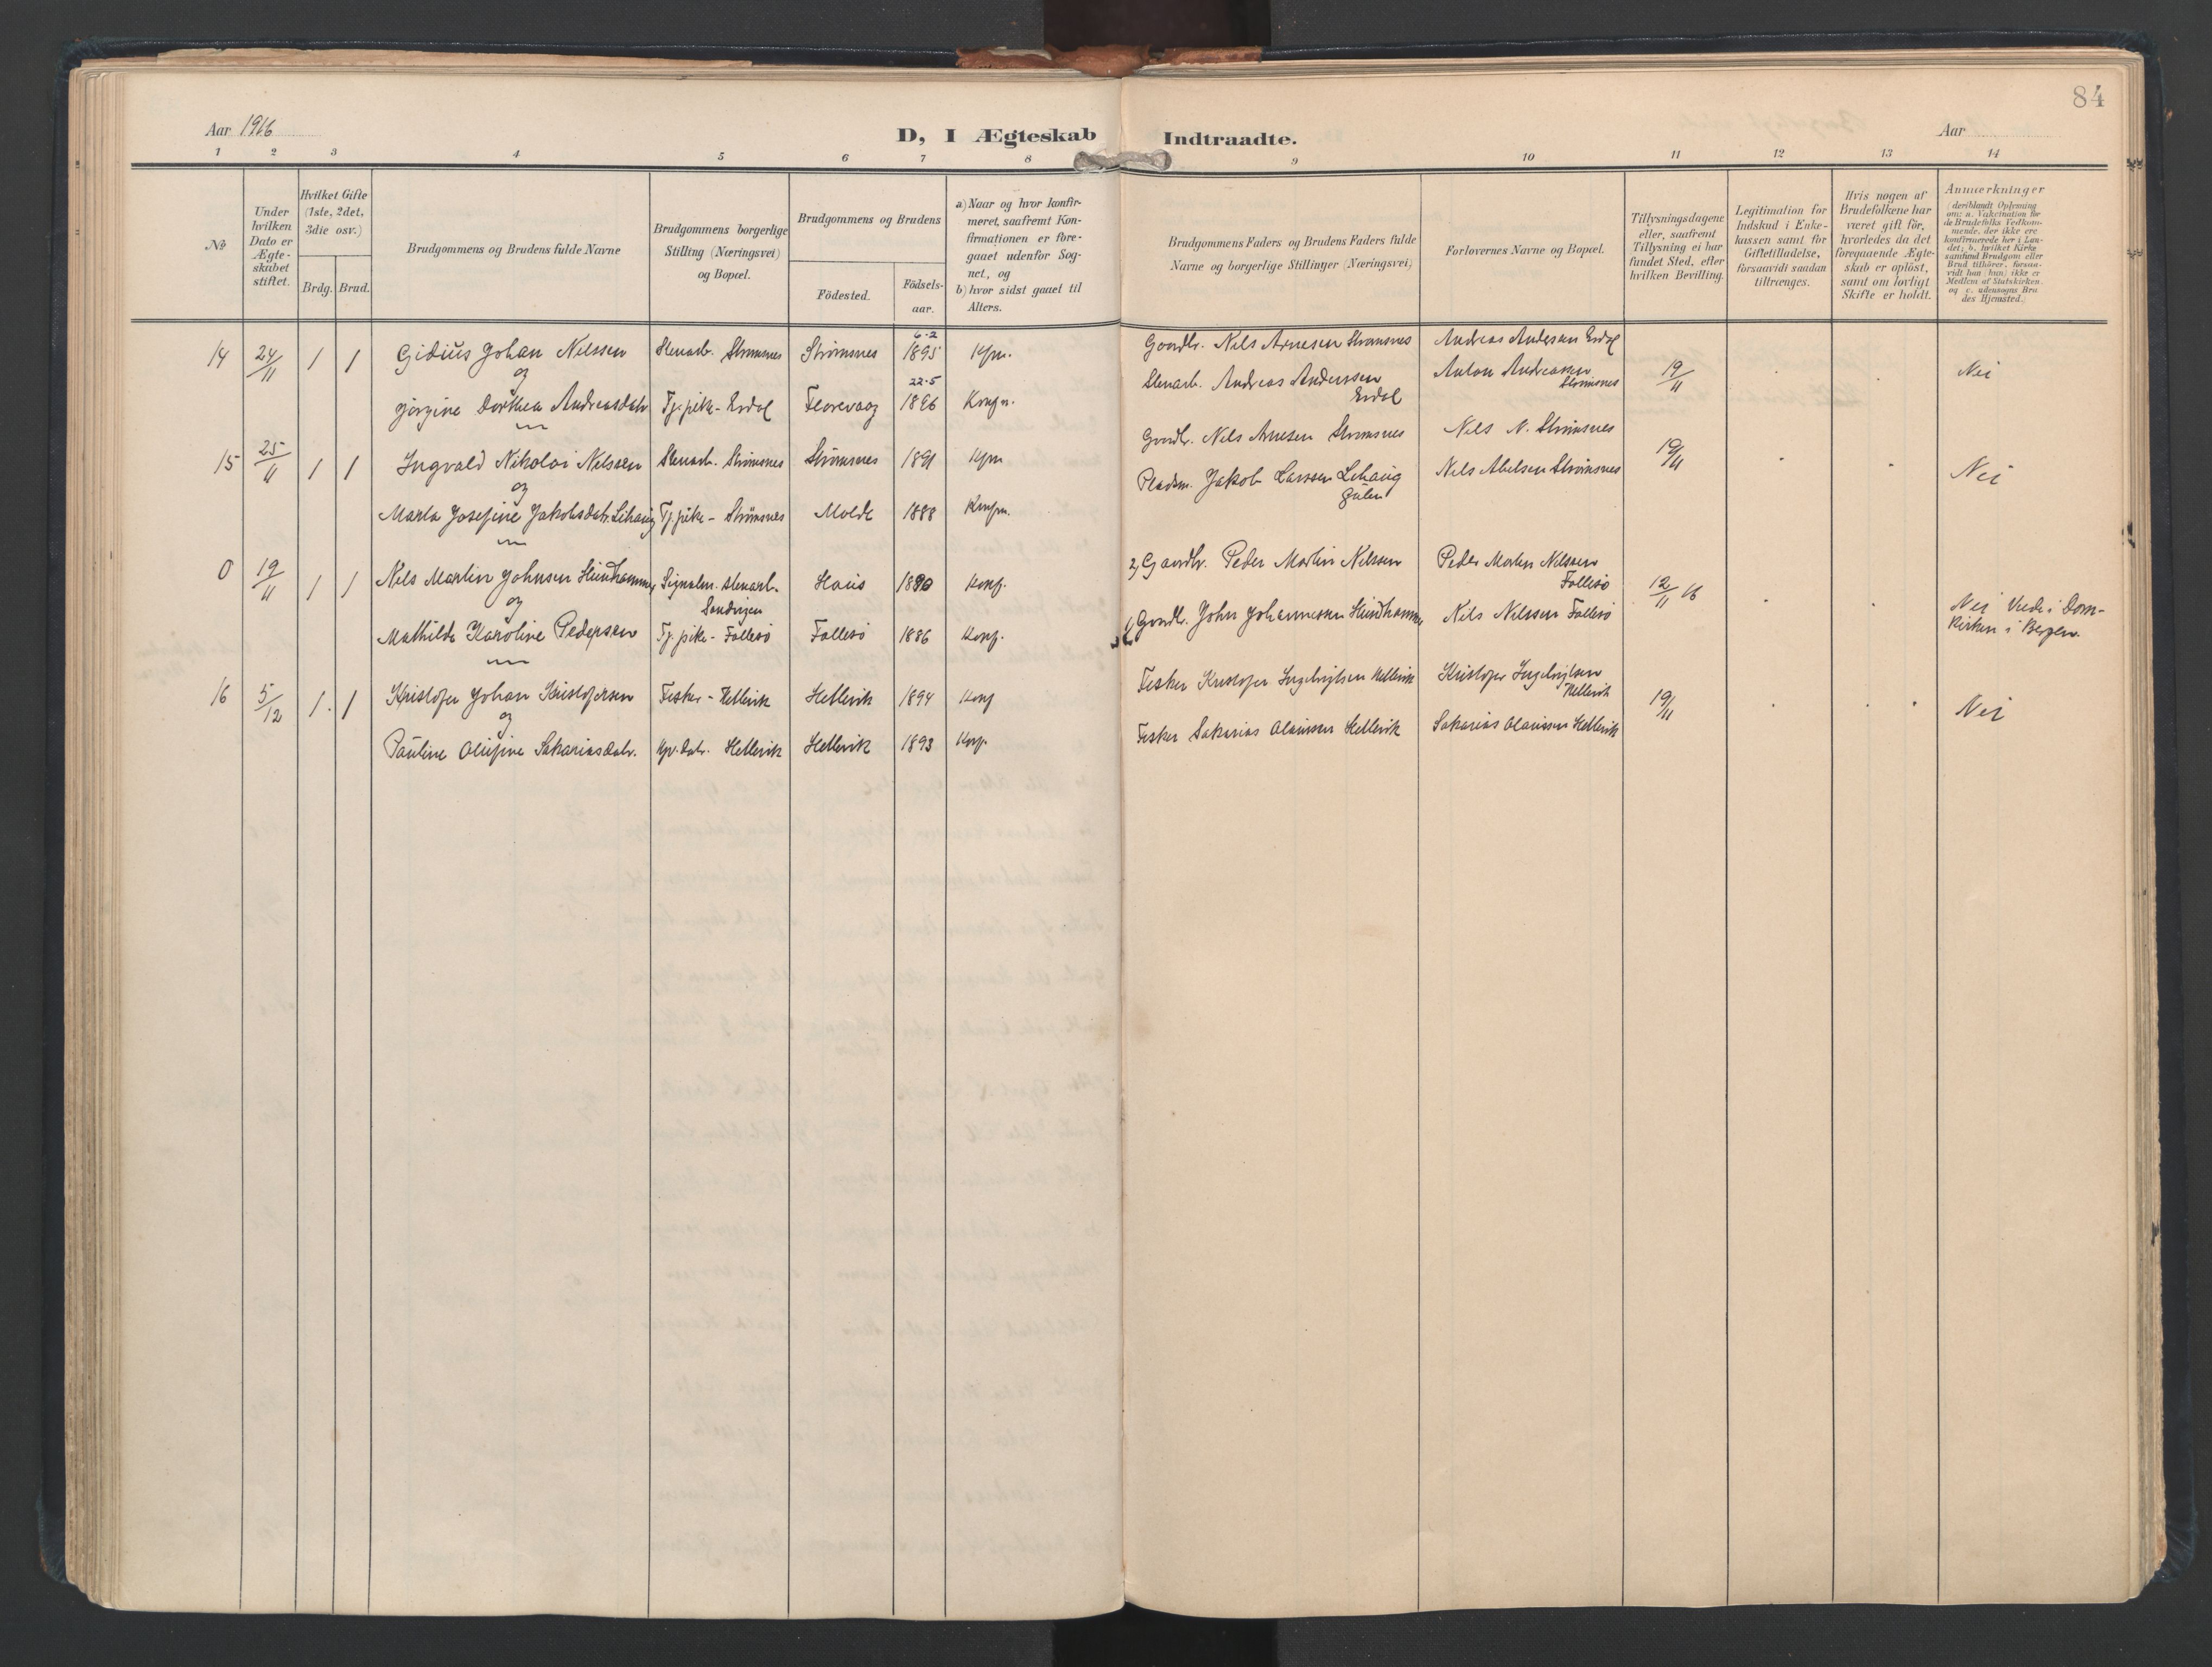 84
Aar 1916
D, I Ægteskab Indtraadte.
Aar
1 2 3 4 5 6 7 8 9 10 11 12 13 14
№
Under hvilken Dato er Ægteskabet stiftet.
Hvilket Gifte (1ste, 2det, 3die osv.)
Brdg. Brud.
Brudgommens og Brudens fulde Navne
Brudgommens borgerlige Stilling (Næringsvei) og Bopæl.
Brudgommens og Brudens
Födested.
Födselsaar.
a) Naar og hvor konfirmeret, saafremt Konfirmationen er foregaaet udenfor Sognet, og
b) hvor sidst gaaet til Alters.
Brudgommens Faders og Brudens Faders fulde Navne og borgerlige Stillinger (Næringsvei)
Forlovernes Navne og Bopæl.
Tillysningsdagene eller, saafremt Tillysning ei har fundet Sted, efter hvilken Bevilling.
Legitimation for Indskud i Enkekassen samt for Giftetilladelse, forsaavidt saadan tiltrænges.
Hvis nogen af Brudefolkene har været gift för, hvorledes da det foregaaende Ægteskab er oplöst, samt om lovligt Skifte er holdt.
Anmærkninger
(deriblandt Oplysning om: a. Vakcination for de Brudefolks Vedkommende, der ikke ere konfirmerede her i Landet; b. hvilket Kirkesamfund Brudgom eller Brud tilhörer, forsaavidt han (hun) ikke er Medlem af Statskirken, og c. udensogns Brudes Hjemsted.)
14 24/11 1 1 Gidius Johan Nilssen Stenarb. Strømsnes Strømsnes 6-2 1895 Kfm. Gaardbr. Nils Arnesen Strømsnes Andreas Andersen Erdal
og
Jørgine Dorthea Andreasdatr Tj.pike - Erdal Florevaag 22-5 1896 Konfm. Stenarb. Andreas Anderssen Erdal Anton Andreassen Strømsnes 19/11 Nei
15 25/11 1 1 Ingvald Nikolai Nilssen Stenarb. Strömsnes Strömsnes 1891 Kfm Gaardbr. Nils Arnesen Strømsnes Nils N. Strömsnes 19/11
og
Marta Josefine Jakobsdatr. Lihaug Tj.pike - Strömsnes Molde 1888 Konfm. Pladsm. Jakob Larssen Lihaug Gulen Nils Abelsen Strömsnes Nei
0 19/11 1 1 Nils Martin Johnsen Stendhammer Signalm. Stenarb. Sandvigen Haus 1880 Konf. 2) Gaardbr. Peder Martin Nilssen Peder Martin Nilssen Follesö 12/11 16
og
Mathilde Karoline Pedersen Tj.pike - Follesö Follesö 1886 Konf. 1) Gaardbr. John Johannessen Stendhammer Nils Nilssen Follesö Nei Viede i Domkirken i Bergen.
16 5/12 1 1 Kristofer Johan Kristofersen Fisker - Hetlevik Hetlevik 1894 Konf Fisker Kristofer Ingebrigtsen Hetlevik Kristofer Ingebrigtsen Hetlevik 19/11
og
Pauline Olufine Sakariasdatr. Gbr.datr. Hetlevik Hetlevik 1893 Konf. Fisker Sakarias Olaussen Hetlevik Sakarias Olaussen Hetlevik Nei